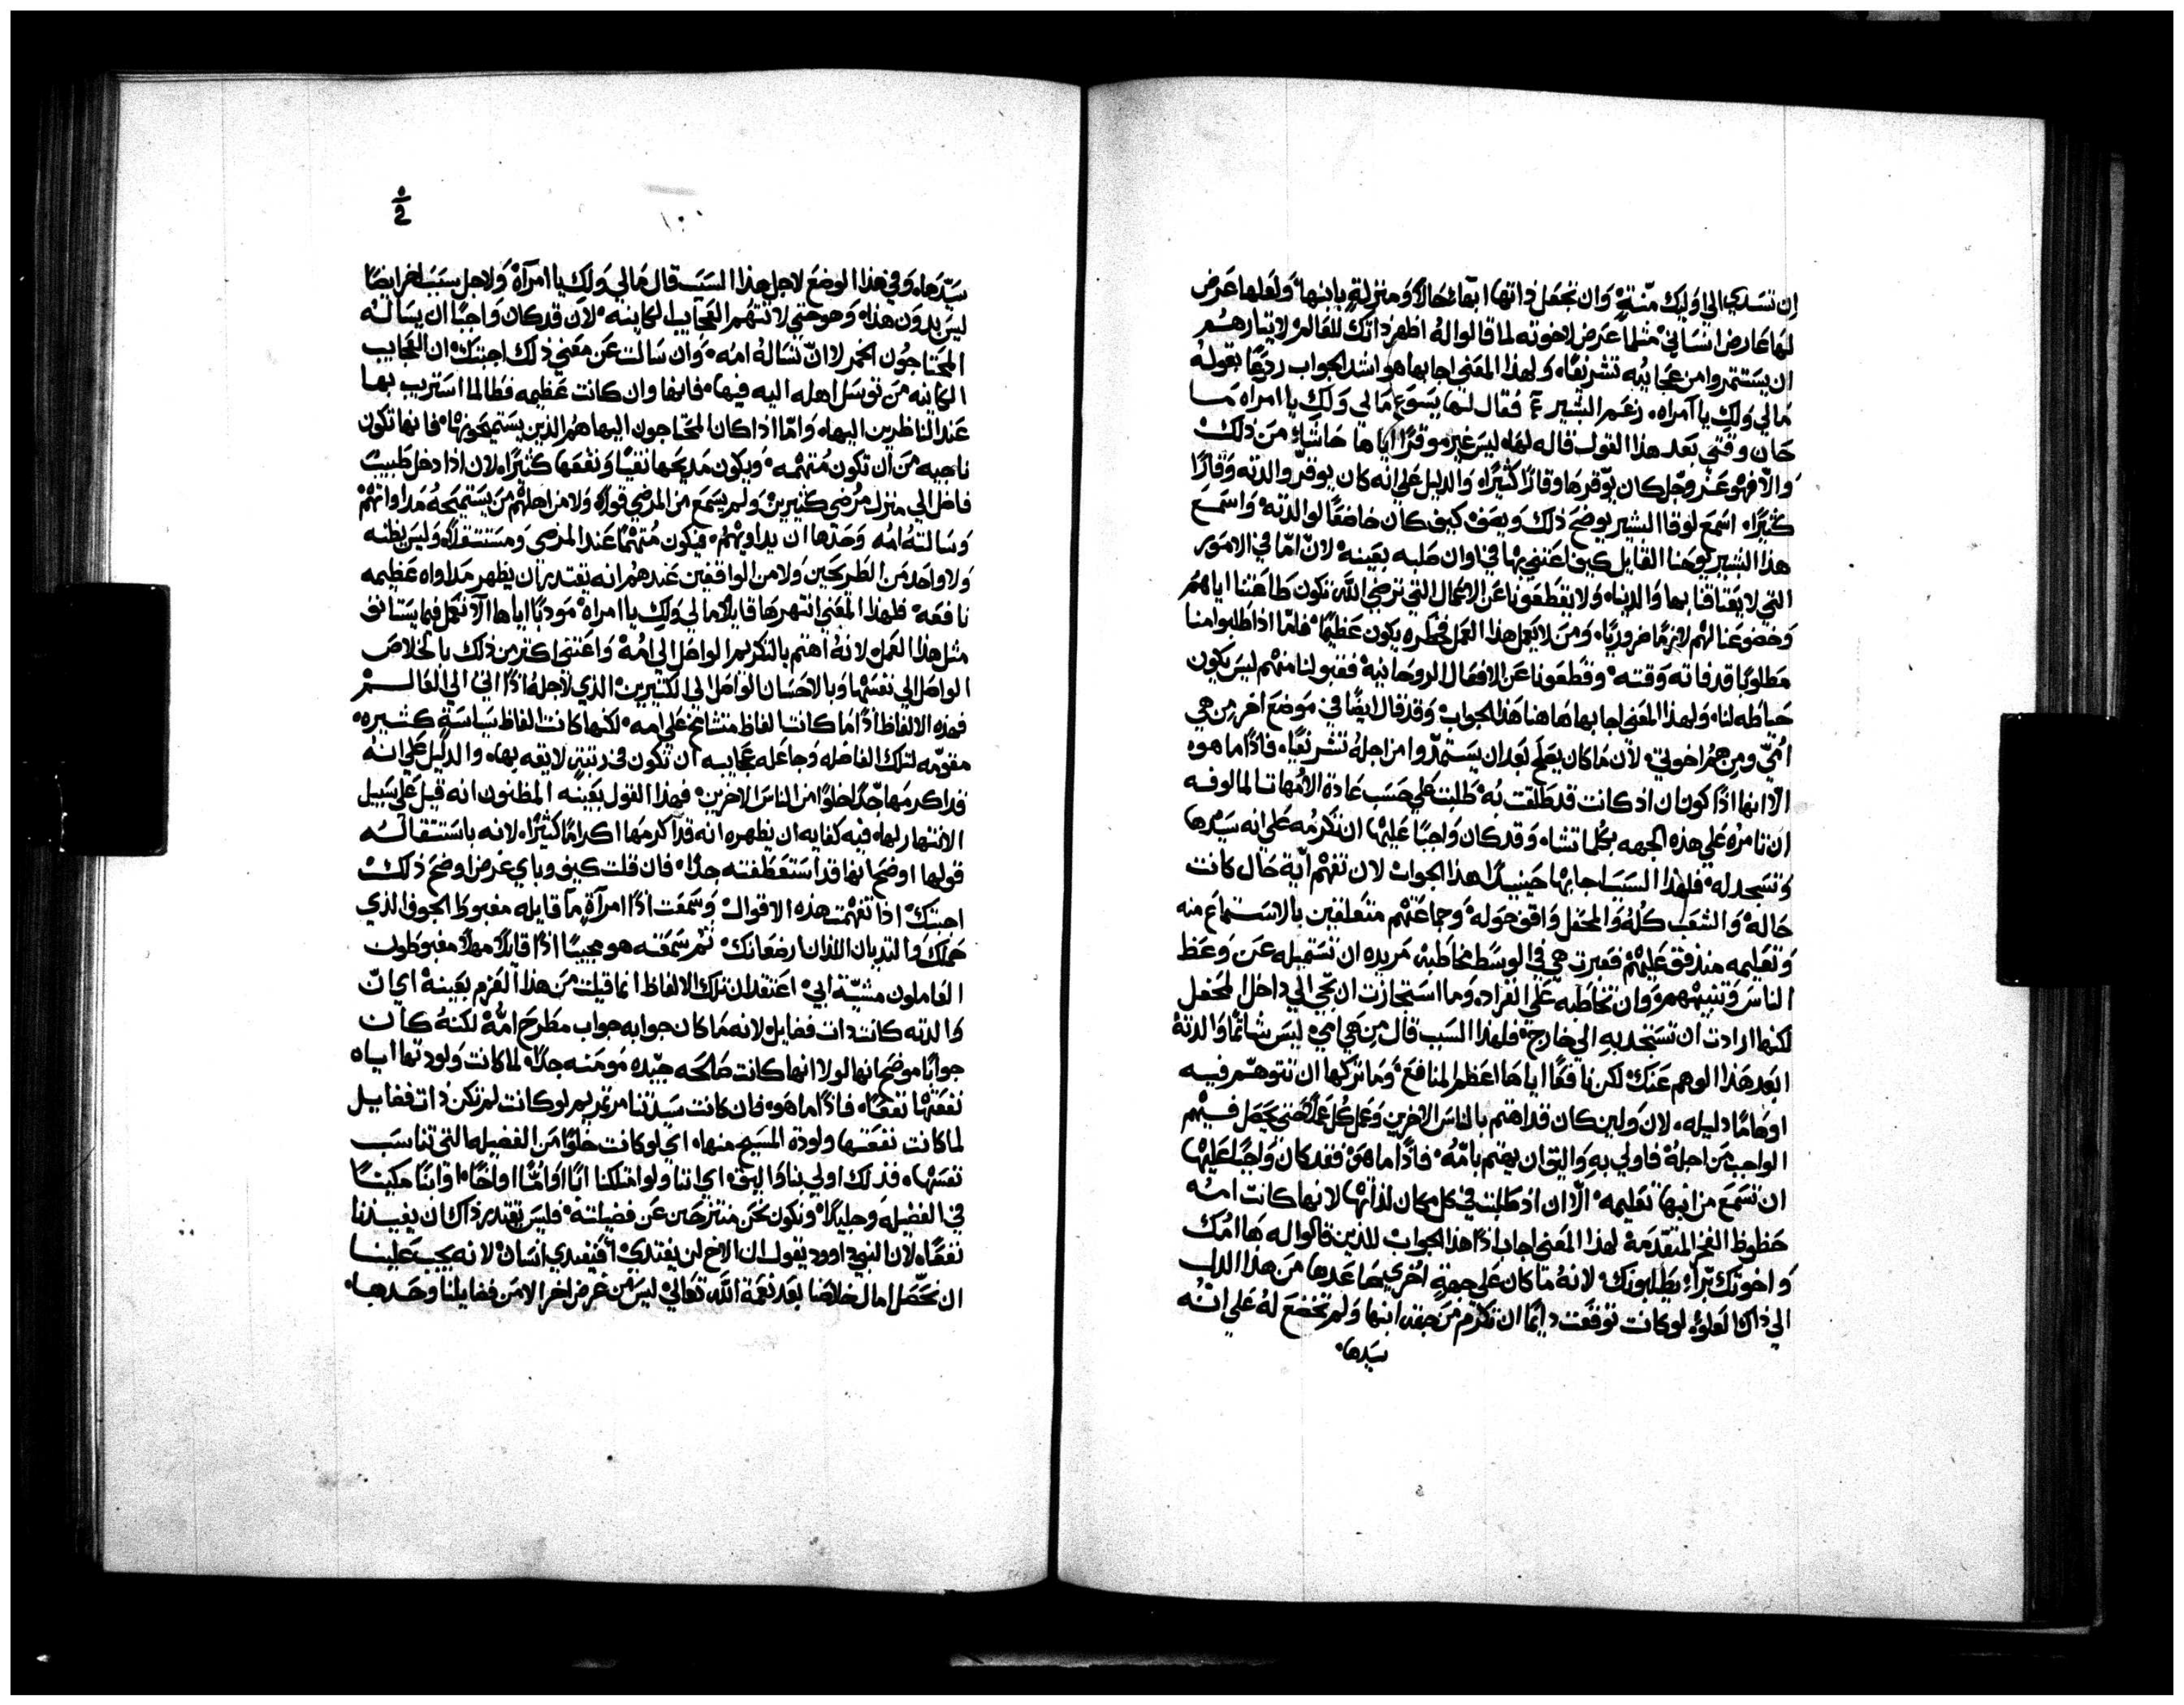 ان تسدي الى اوليك منّةٍ وان تجعل داتها ابهاءً حالاً ومنزلةٍ بابنها ولعلها عرض
لها عارض انساني مثلما عرض لاخوته لما قالوا له اظهر داتك للعالم لايثارهم
ان يستثمروا من عجايبه تشريفًا ولهذا المعني اجابها هو اشد الجواب ردعًا بقوله
مالي ولكِ يا امراه زعم البشير فقال لها يسوع مالي ولكِ يا امراه ما
حان وقتي بعد هذا القول قاله لها ليس غير موقرًا اياها حاشاهُ من ذلك
والّا فهو عز وجل كان يوّقرها وقارًا كثيرًا والدليل علي انه كان يوقر والدته وقارًا
كثيرًا اسمع لوقا البشير يوضح ذلك ويصف كيف كان خاضعًا لوالدته واسمع
هذا البشير يوحنا القايل كيف اعتني بها في اوان صلبه بعينه لانّ امّا في الامور
التي لا يعتاقنا بها والدينا ولا يقطعونا عن الاعمال التي ترضي الله تكون طاعتنا اياهم
وخضوعنا لهم لازمًا ضروريًا ومن لا يعمل هذا العمل فخطره يكون عظيمًا فامّا اذا طلبوا منا
مطلوبًا قد فاته وقته وقطعونا عن الافعال الروحانية فقبولنا منهم ليس يكون
حياطه لنا ولهذا المعني اجابها هاهنا هذا الجواب وقد قال ايضًا في موضع اخر من هي
امّي ومن هم اخوتي لان ما كان يصلح بعد ان يستمدّوا من اجله تشريفًا فاذًا ما هوه
الّا انها اذًا كون ان اذ كانت قد طلقت به طلبت علي حسب عادة الامهات المالوفه
ان تامره علي هذه الجهه بكلما تشاء وقد كان واجبًا عليها ان تكرمه علي انه سيدها
وتسجد له فلهذا السبب اجابها حينيذ هذا الجواب لان تفهم اية حال كانت
حاله والشعب كله والمحفل واقف حوله وجماعتهم متعلقين بالاستماع منه
وتعليمه مندفق عليهم فعبرت هي في الوسط مخاطبه مريده ان تستميله عن وعظ
الناس وتنبيههم وان تخاطبه علي انفراده وما استجازت ان تجي الي داخل المحفل
لكنها ارادت ان تستجذبه الي خارج فلهذا السبب قال من هي امي ليس شاتمًا والدتهُ
ابعد هذا الوهم عنك لكن نافعًا اياها اعظم المنافع وما تركها ان تتوهم فيه
اوهامًا دليله لان ولين كان قد اهتم بالناس الاخرين وعمل كل عمل حتي يحصل فيهم
الواجب من اجله فاولي به واليق ان يهتم بامّه فاذًا ما هو فقد كان واجبًا عليها
ان تسمع من ابنها تعليمه الّا ان اذ طلبت في كل مكان لذاتها لانها كانت امه
حظوظ الفخر المتقدمة لهذا المعني اجاب اذًا هذا الجواب للذين قالوا له ها امّك
واخوتك برّاء يطلبونك لانه ما كان علي جهةٍ اخري يحاعدها من هذا الذل
الي ذاك العلوّ لو كانت توقعت دايمًا ان تكرم من جهه ابنها ولم تخضع له علي انه
سيدها
١٠٠
سيّدها وفي هذا الوضع لاجل هذا السبب قال مالي ولكِ يا امرآة ولاجل سبب اخر ايضًا
ليس بدون هذا وهو حتي لا تتهم العجايب الكاينه لان قد كان واجبًا ان يساله
المحتاجون الخمر لا انّ تساله امه وان سالت عن معني ذلك اجبتك ان العجايب
الكاينه من توسل اهله اليه فيها فانها وان كانت عظيمه فطالما استريب بها
عند الناظرين اليها وامّا اذا كان المحتاجون اليها هم الذين يستميحونها فانها تكون
ناجيه من ان تكون متهمه ويكون مديحها نقيًا ونفعها كثيرًا لان اذا دخل طبيبٌ
فاضل الي منزل مرضي كثيرين ولم يسمع من المرضي قولاً ولا من اهلهم من يستميحه مداواتهم
وسالته امه وحدها ان يداويهم فيكون متهمًا عند المرضي ومستثقلاً وليس يظنه
ولا واحد من الطريحين ولا من الواقفين عندهم انه يقتدر ان يظهر مداواه عظيمه
نافعه فلهذا المعني انتهرها قايلًا مالي ولكِ يا امراه مودبًا اياها الّا تعمل فيما يستانف
مثل هذا العمل لانه اهتم بالتكريم الواصل الي امه واعتني اكثر من ذلك بالخلاص
الواصل الي نفسها وبالاحسان الواصل الي الكثيرين الذي لاجله اذًا اتي الي العالم
فهذه الالفاظ اذًا ما كانت الفاظ متشامخ علي امه لكنها كانت الفاظ سياسةٍ كثيره
مقوّمه لتلك الفاضله وجاعله عجايبه ان تكون في رتبتهِ لايقه بها والدليل علي انه
قد اكرمها جدًا خلوًا من الناس الاخرين فهذا القول بعينه المظنون انه قيل علي سبيل
الانتهار لها فيه كفايه ان يظهره انه قد اكرمها اكرامًا كثيرًا لانه باستثقاله
قولها اوضح انها قد استعطفته جدًا فان قلت كيف وباي غرض اوضح ذلك
اجبتك اذا تفهمت هذه الاقوال وسمعت اذًا امرآةٍ ما قايله مغبوط الجوف الذي
حملك والتديان اللذان ارضعانك تم سمعته هو مجيبًا اذًا قايلاً مهلاً مغبوطون
العاملون مشيّة ابي اعتقد ان تلك الالفاظ انما قيلت من هذا العزم بعينه اي انّ
والدته كانت دات فضايل لانه ما كان جوابه جواب مطرح امّه لكنه كان
جوابًا موضحًا انها لولا انها كانت صالحه جيّده مومنه جدًا لما كانت ولودتها اياه
نفعتها نفعًا فاذًا ما هو فان كانت سيدتنا مرتمريم لو كانت لم تكن دات فضايل
لما كانت نفعتها ولودة المسيح منها اي لو كانت خلوًا من الفضيله التي تناسب
نفسها فذلك اولي بنا واليق اي اننا ولو امتلكنا ابًا او امًّا او اخًا او ابنًا مكينًا
في الفضيله وجليلًا ونكون نحن منتزحين عن فضيلته فليس يقتدر ذاك ان يفيدنا
نفعًا لان النبي داوود يقول ان الاخ لن يفتدي افيفدي انسان لانه يجب علينا
ان نحصّل امال خلاصنا بعد نعمة الله تعالي ليس من غرض اخر الا من فضايلنا وحدها